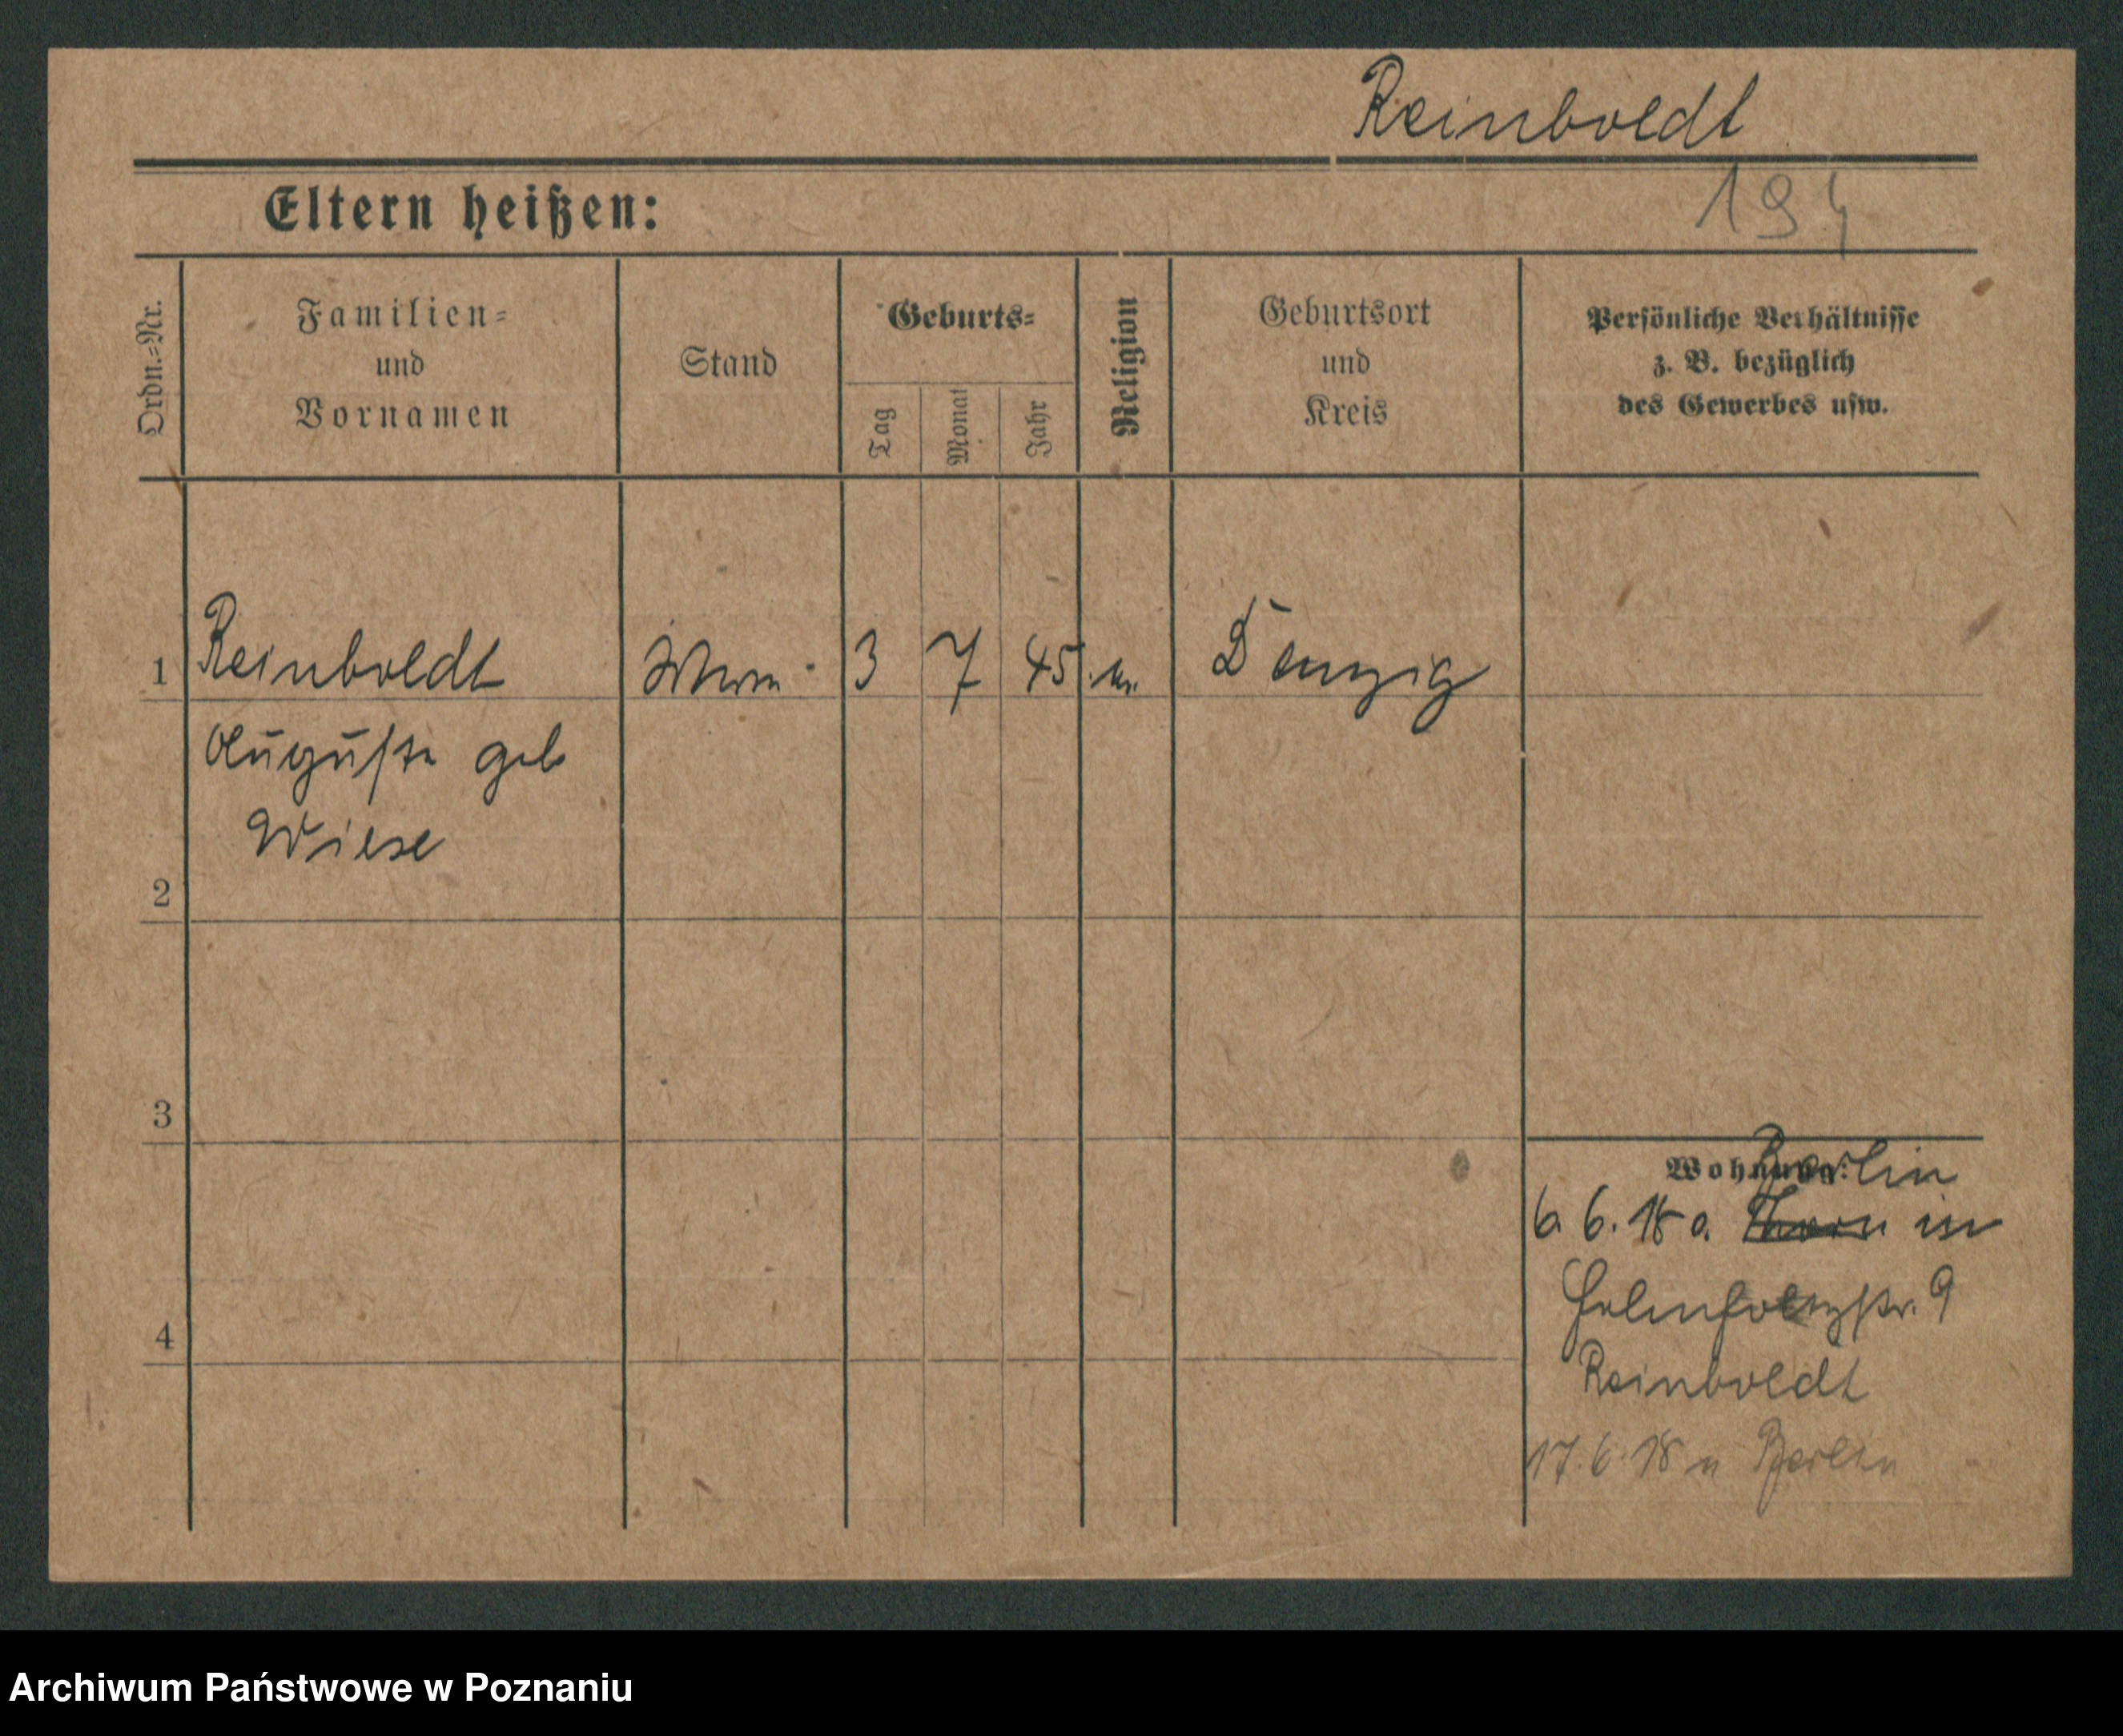 Reinboldt
Eltern heißen:
Ordn.=Nr.
Familien=
und
Vornamen
Stand
Geburts=
Tag
Monat
Jahr
Religion
Geburtsort
und
Kreis
Persönliche Verhältnisse
z. B. bezüglich
des Gewerbes usw.
1 Reinboldt 3 7 45 Danzig
Auguste geb
Wiese
2
3
4
Wohnung:
Berlin
6. 6. 18 Thorn in
9
Reinboldt
17. 6. 18 n Berlin
Archiwum Państwowe w Poznaniu